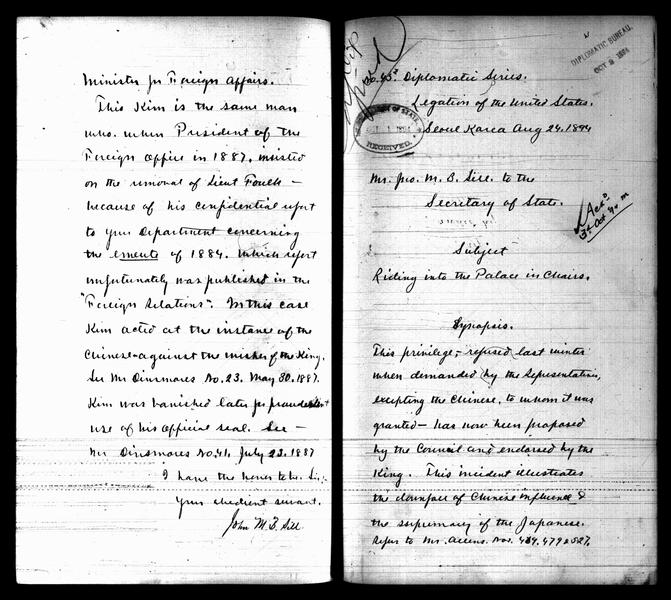 Minister for Foreign Affairs.
This Kim is the same man
who, when President of the
Foreign Office in 1887, insisted
on the removal of Lieut Foulk —
because of his confidential report
to your Department concerning
the emeute of 1884. Which report
unfortunately was published in the
"Foreign Relations". In this case
Kim acted at the instance of the
Chinese - against the wishes of the King.
See Mr Dinsmores No. 23. May 30. 1887.
Kim was banished later for fraudulent
use of his official seal. See —
Mr Dinsmores No. 41. July 22. 1887
I have the honor to be Sir,
Your obedient servant.
John M. B. Sill
DIPLOMATIC BUREAU.
OCT 1894
No. 45 Diplomatic Series.
Legation of the United States.
OF STATE
RECEIVED.
Seoul Korea Aug 24. 1894
Mr. Jno. M. B. Sill to the
Secretary of State.
Ack'd
3d Oct
Subject
Riding into the Palace in Chairs.
Synopsis.
This privilege; refused last winter
when demanded by the Representatives,
excepting the Chinese, to whom it was
granted — has now been proposed
by the Council and endorsed by the
King. This incident illustrates
the downfall of Chinese influence &
the supremacy of the Japanese.
Refer to Mr. Allens. Nos. 479 & 527.